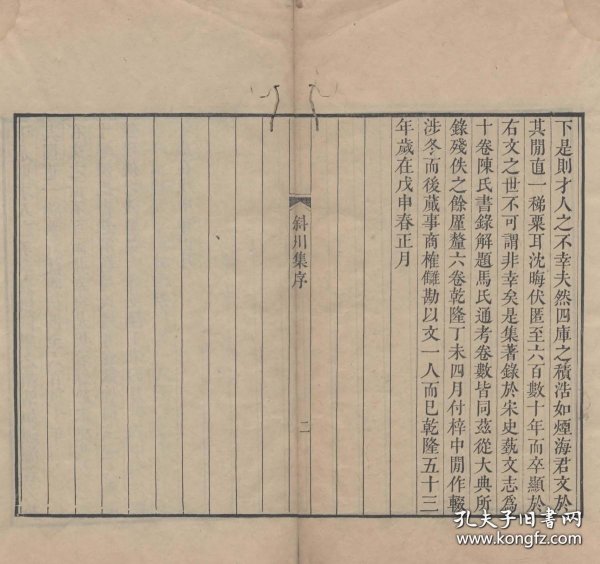 下是則才人之不幸夫然四庫之積浩如煙海君文於
其閒直一稊粟耳沈晦伏匿至六百數十年而卒顯於
右文之世不可謂非幸矣是集著錄於宋史藝文志為
十卷陳氏書錄解題馬氏通考卷數皆同茲從大典所
錄殘佚之餘厘釐六卷乾隆丁未四月付梓中閒作輟
涉冬而後蕆事商榷讎勘以文一人而已乾隆五十三
年歲在戊申春正月
斜川集序
二
孔夫子旧书网
www.kongfz.com